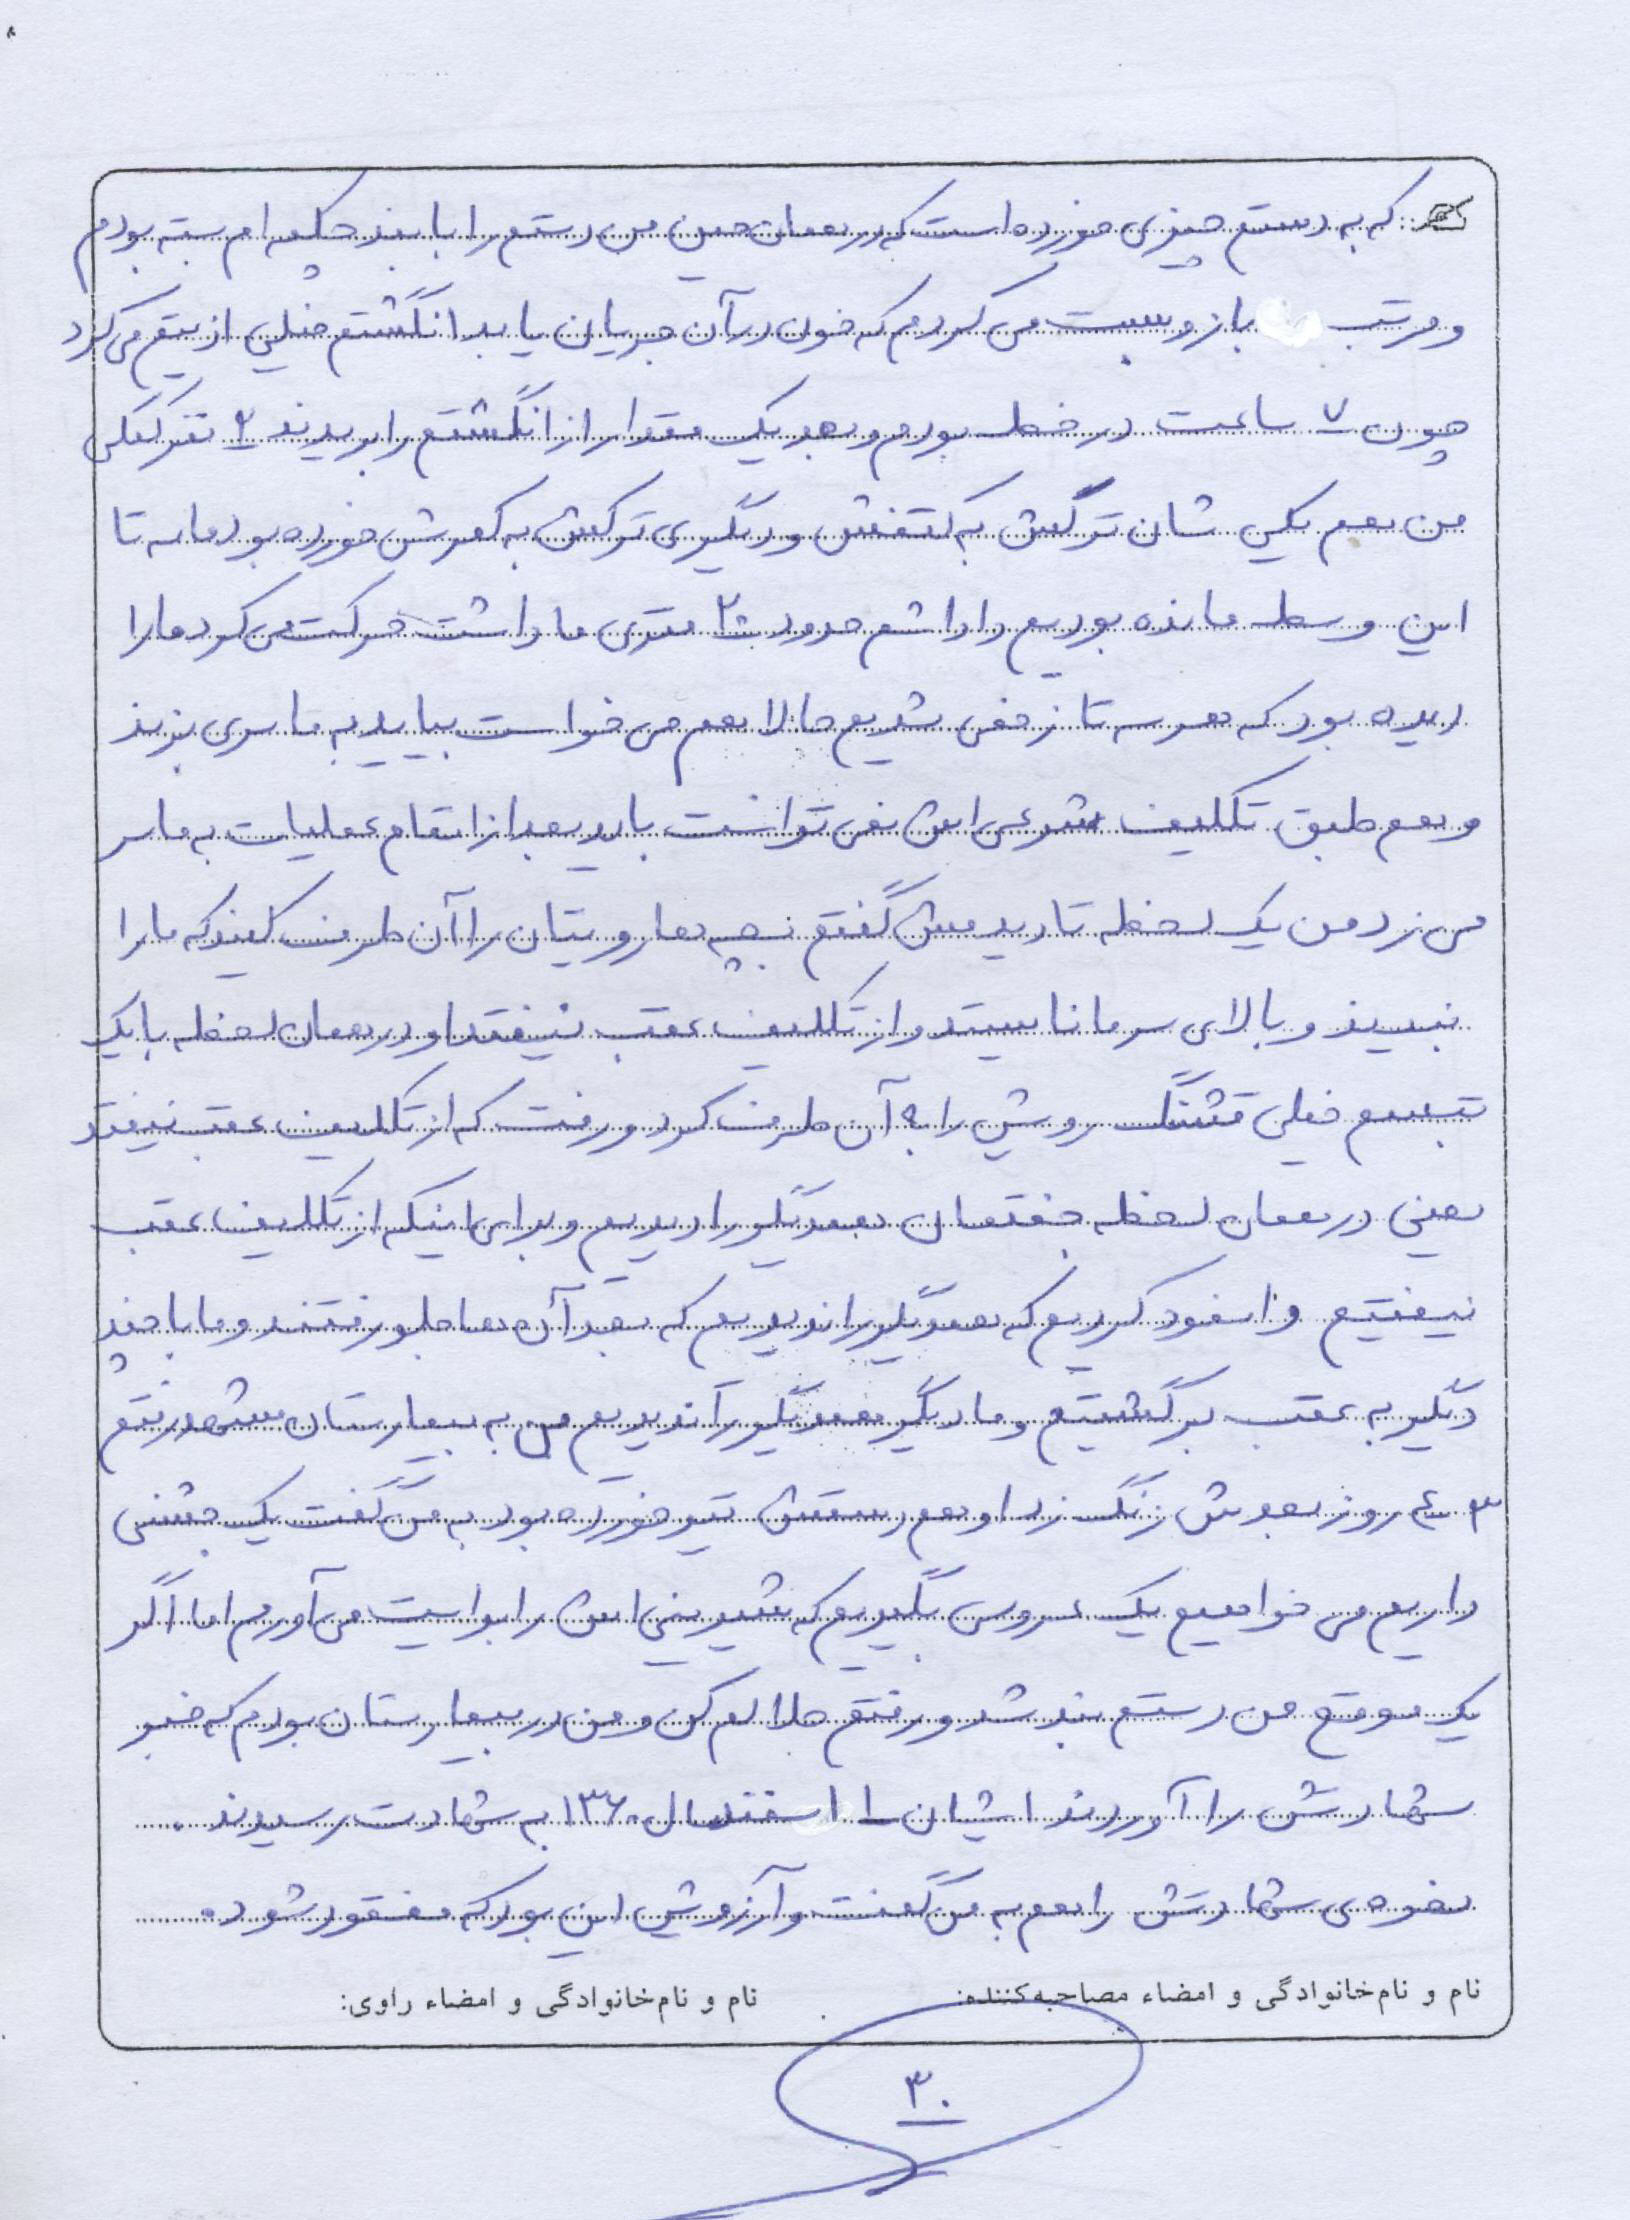 که به دستم چیزی خورده است که در همان حین من دستم را با بند چکمه ام بسته بودم
و مرتب باز و بست می کردم که خون در آن جریان یابد انگشتم خیلی اذیتم می کرد
چون ۷ ساعت در خط بودم و بعد یک مقدار از انگشتم را بریدند ۲ نفر کمکی
من هم یکی شان ترکش به کتفش و دیگری ترکش به کمرش خورده بود ما سه تا
این وسط مانده بودیم داداشم حدود ۲۰ متری ما داشت حرکت می کرد ما را
دیده بود که هر سه تا زخمی شدیم حالا هم می خواست بیاید به ما سری بزند
و هم طبق تکلیف شرعی اش نمی توانست باید بعد از اتمام عملیات به ما سر
می زد من یک لحظه تا دیدمش گفتم بچه ها رویتان را آن طرف کنید که ما را
نبیند و بالای سر ما نایستد و از تکلیف عقب نیفتد او در همان لحظه با یک
تبسم خیلی قشنگ رویش را به آن طرف کرد و رفت که از تکلیف عقب نیفتد
یعنی در همان لحظه جفتمان همدیگر را دیدیم و برای اینکه از تکلیف عقب
نیفتیم وانمود کردیم که همدیگر را ندیدیم که بعد آن ها جلو رفتند و ما با چند
دیگر به عقب برگشتیم و ما دیگر همدیگر را ندیدیم من به بیمارستان مشهد رفتم
۳ ـ ۴ روز بعدش زنگ زد او هم دستش تیر خورده بود به من گفت یک جشنی
داریم می خواهیم یک عروسی بگیریم که شیرینی اش را برایت می آورم اما اگر
یک موقع من دستم بند شد و رفتم حلالم کن و من در بیمارستان بودم که خبر
شهادتش را آوردند ایشان ۱ اسفند سال ۱۳۶۰ به شهادت رسیدند .
نحوه ی شهادتش را هم به من گفت و آرزویش این بود که مفقود شود .
نام و نام‌خانوادگی و امضاء مصاحبه‌کننده: نام و نام‌خانوادگی و امضاء راوی:
۳۰